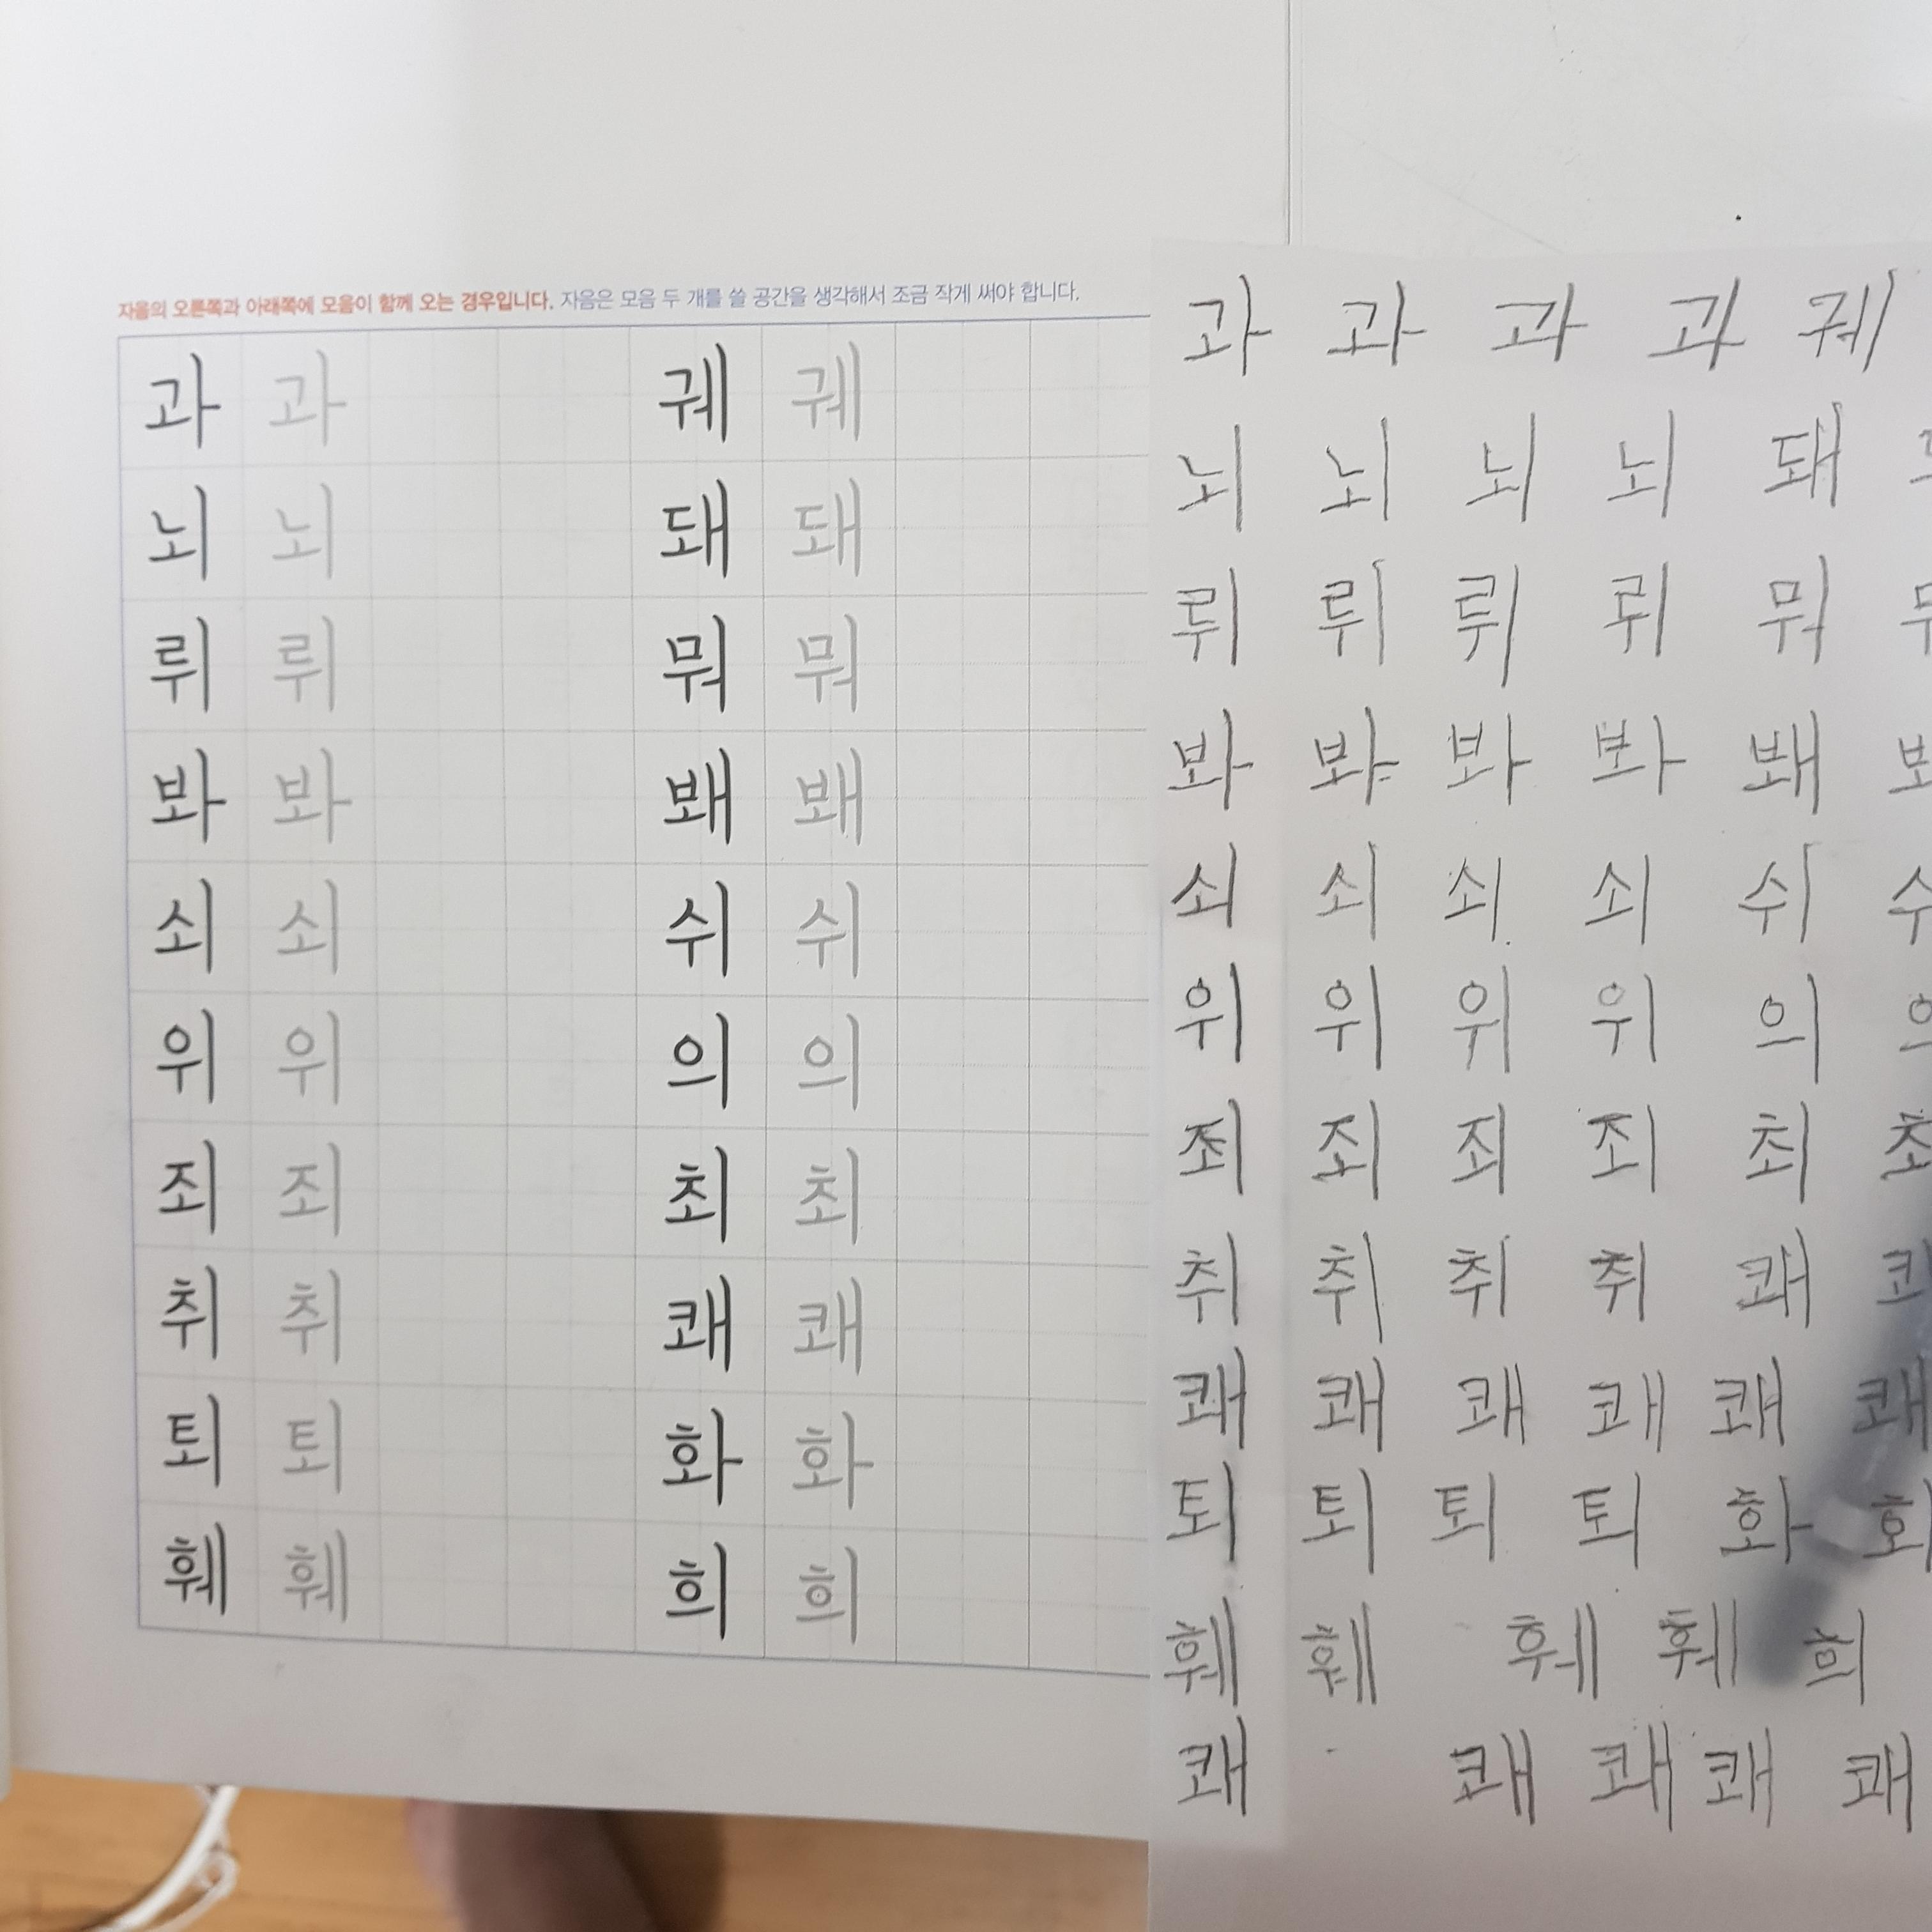 자음의 오른쪽과 아래쪽에 모음이 함께 오는 경우입니다. 자음은 모음 두 개를 쓸 공간을 생각해서 조금 작게 써야 합니다.
과 과 궤 궤 과 과 과 과 궤
뇌 뇌 돼 돼 뇌 뇌 뇌 뇌 돼
뤼 뤼 뭐 뭐 뤼 뤼 뤼 뤼 뭐
봐 봐 봬 봬 봐 봐 봐 봐 봬
쇠 쇠 쉬 쉬 쇠 쇠 쇠 쇠 쉬
위 위 의 의 위 위 위 위 의
죄 죄 최 최 죄 죄 죄 죄 최
취 취 쾌 쾌 취 취 취 취 쾌
퇴 퇴 화 화 쾌 쾌 쾌 쾌 쾌 쾌
훼 훼 희 희 퇴 퇴 퇴 퇴 화
훼 훼 훼 훼 희
쾌 쾌 쾌 쾌 쾌